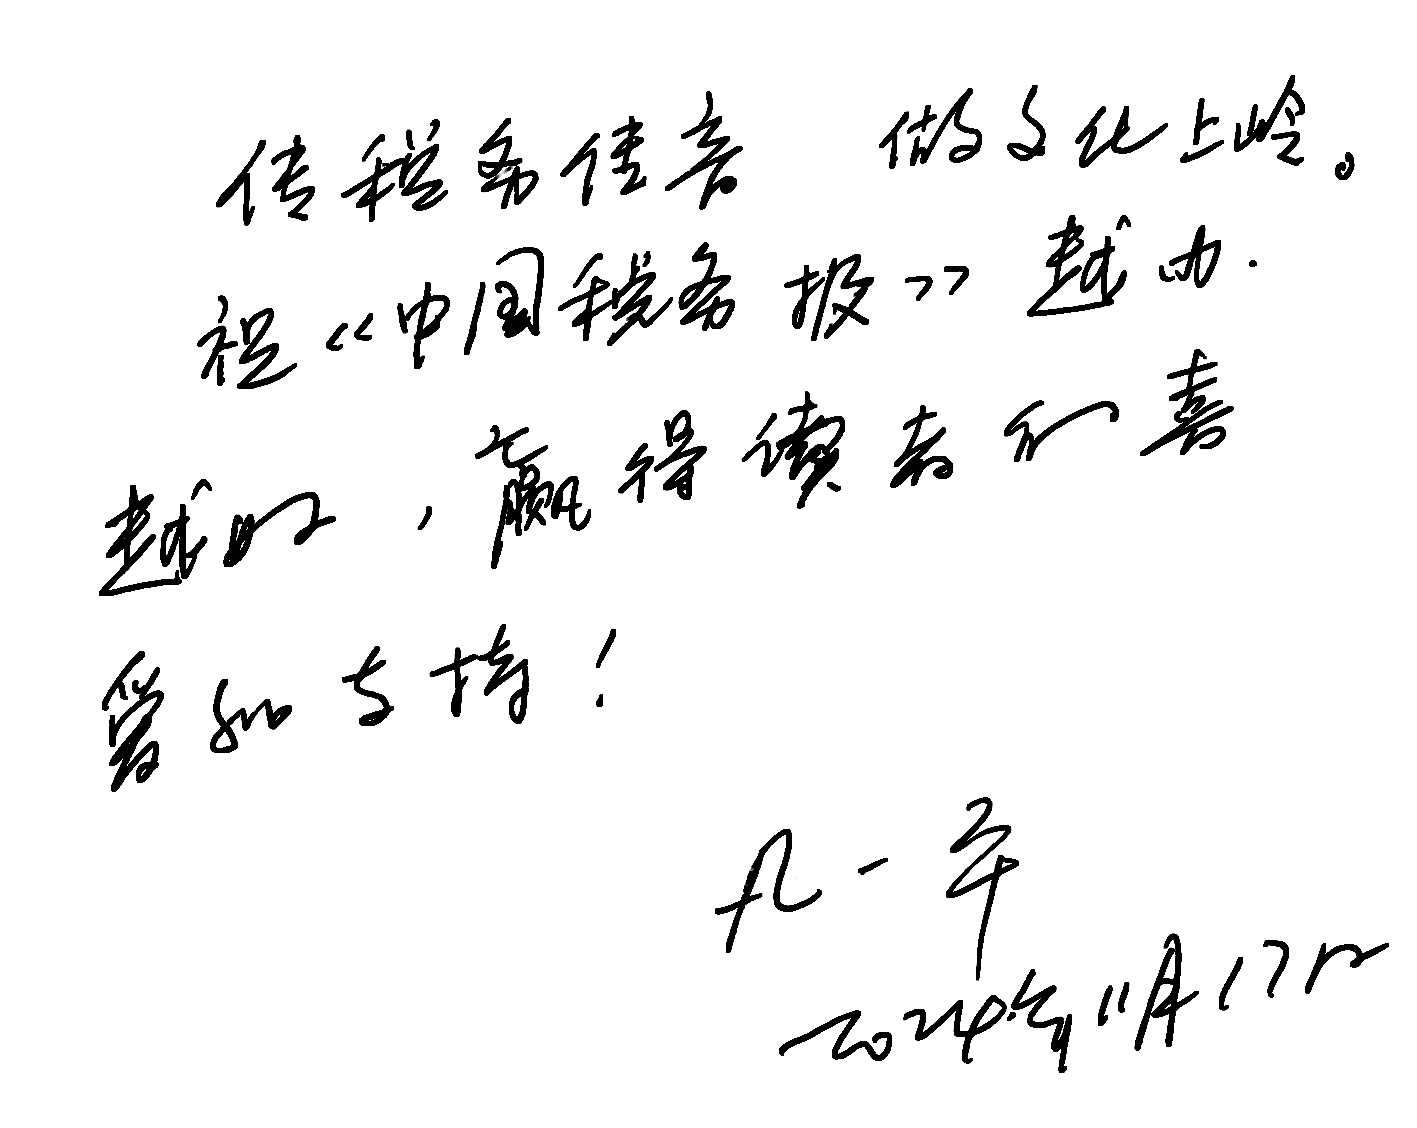 传税务佳音 做文化上岭。
祝《中国税务报》越办
越好,赢得读者的喜
爱和支持!
凡一平
2024年11月17日